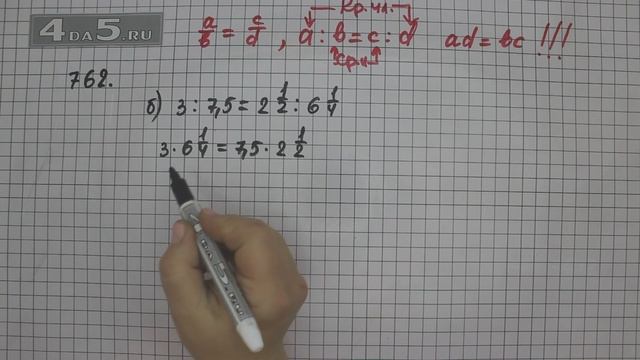 4DA5.RU
a/b = c/d , a : b = c : d ad = bc !!!
кр.чл.
ср.чл.
762.
б) 3 : 7,5 = 2 1/2 : 6 1/4
3 · 6 1/4 = 7,5 · 2 1/2